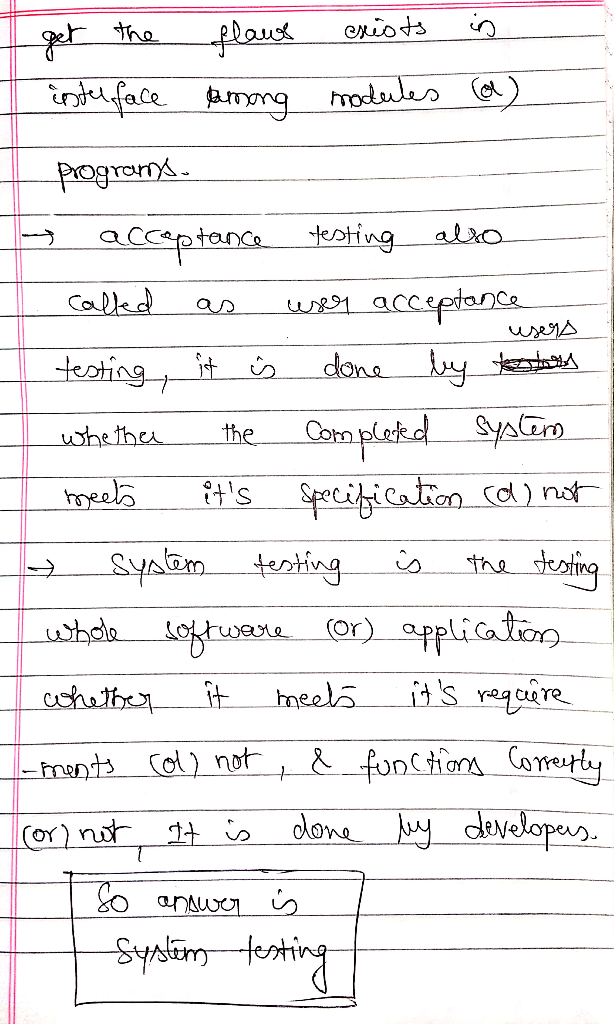 get the flaws exists in
interface among modules (or)
programs.
→ acceptance testing also
called as user acceptance
users
testing, it is done by testers
whether the completed system
meets it's specification (or) not
→ system testing is the testing
whole software (or) application
whether it meets it's require
-ments (or) not, & functions correctly
(or) not, It is done by developers.
So answer is
System testing